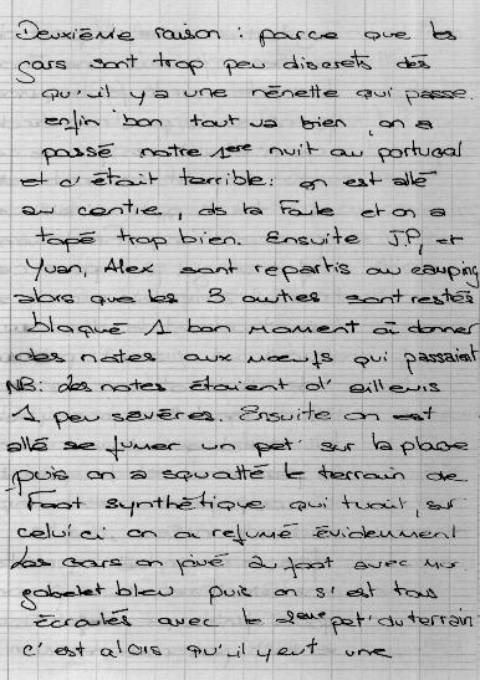 Deuxième raison : parce que les
gars sont trop peu discrets dès
qu'il y a une nénette qui passe.
enfin bon tout va bien, on a
passé notre 1ere nuit au portugal
et c'était terrible : on est allé
au centre, ds la Foule et on a
tapé trop bien. Ensuite J.P, et
Yvan, Alex sont repartis au camping
alors que les 3 autres sont restés
bloqué 1 bon moment à donner
des notes aux meufs qui passaient
NB : des notes étaient d'ailleurs
1 peu sévères. Ensuite on est
allé se fumer un pet' sur la place
puis on a squatté le terrain de
Foot synthétique qui tuait, sur
celui ci on a refumé évidemment
Les Gars on joué au foot avec
gobelet bleu puis on s'est tous
écroulés avec le 2eme pet' du terrain
c'est alors qu'il y eut une